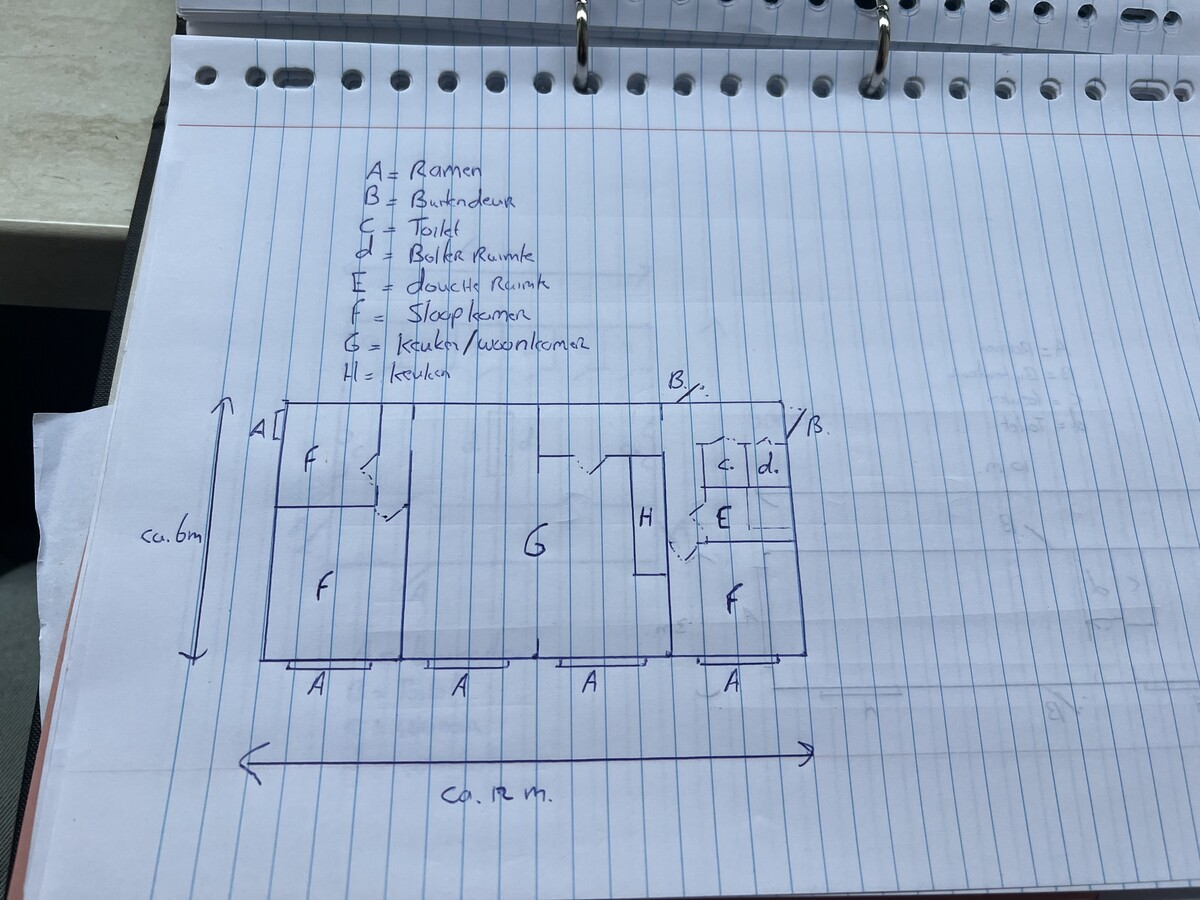 A = Ramen
B = Buitendeur
C = Toilet
d = Boiler Ruimte
E = douche Ruimte
F = Slaapkamer
G = keuken/woonkamer
H = keuken
B.
A
B.
F
C.
d.
ca. 6m
G
H
E
F
F
A
A
A
A
ca. 12 m.